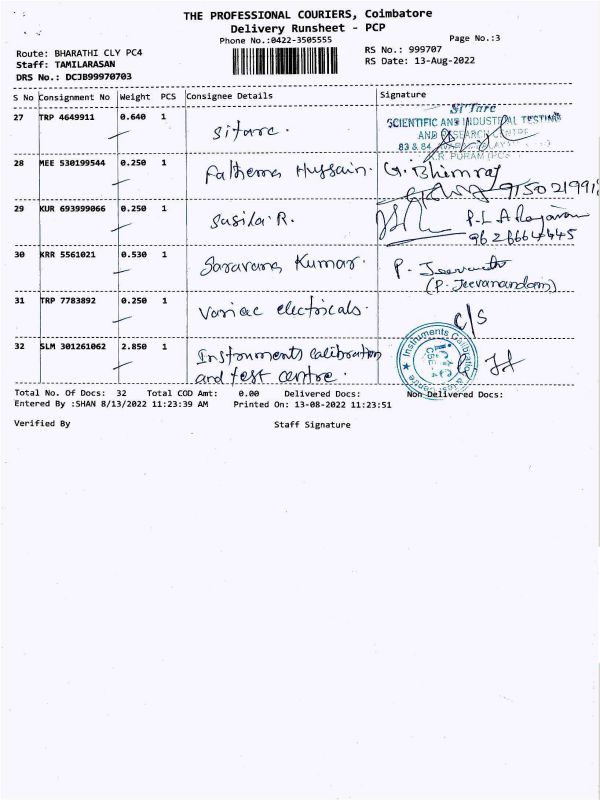 THE PROFESSIONAL COURIERS, Coimbatore
Delivery Runsheet - PCP
Phone No.:0422-3505555
Page No.:3
Route: BHARATHI CLY PC4
RS No.: 999707
Staff: TAMILARASAN
RS Date: 13-Aug-2022
DRS No.: DCJB99970703
S No Consignment No Weight PCS Consignee Details Signature
27 TRP 4649911 0.640 1 Sitarc.
SiTarc
SCIENTIFIC AND INDUSTRIAL TESTING
AND RESEARCH CENTRE
83 & 84
K.R PURAM
28 MEE 530199544 0.250 1 Fathema Hussain. G. Bhimraj
29 KUR 693999066 0.250 1 Sasila R.
9626664445
30 KRR 5561021 0.530 1 Saravana Kumar. P. Jeevanandam
(P. Jeevanandam)
31 TRP 7783892 0.250 1 Variac electricals. C/S
32 SLM 301261062 2.850 1 Instruments calibration
and test centre.
Instruments Calibration & Test Centre
Total No. Of Docs: 32 Total COD Amt: 0.00 Delivered Docs: Non Delivered Docs:
Entered By :SHAN 8/13/2022 11:23:39 AM Printed On: 13-08-2022 11:23:51
Verified By Staff Signature